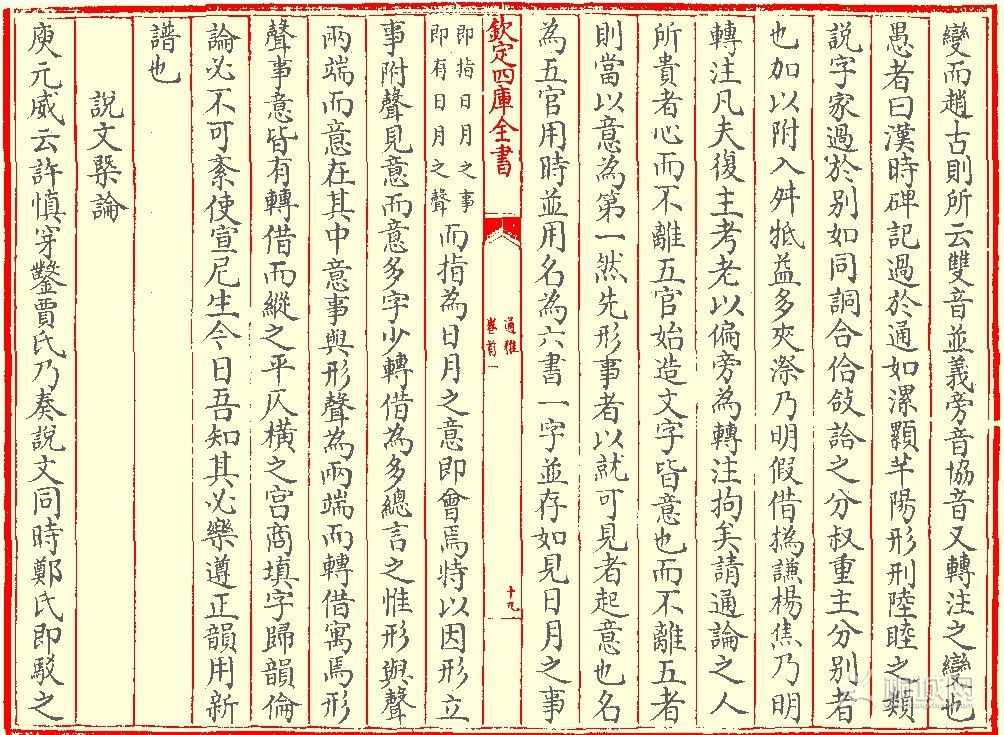 變而趙古則所云雙音並義旁音協音又轉注之變也
愚者曰漢時碑記過於通如漯顯芊陽形刑陸睦之類
説字家過於別如同詷合佮敆詥之分叔重主分別者
也加以附入舛牴益多夾漈乃明假借撝謙楊焦乃明
轉注凡夫復主考老以偏旁為轉注拘矣請通論之人
所貴者心而不離五官始造文字皆意也而不離五者
則當以意為第一然先形事者以就可見者起意也名
為五官用時並用名為六書一字並存如見日月之事
欽定四庫全書
通雅
卷首一
十九
即指日月之事
即有日月之聲
而指為日月之意即會焉特以因形立
事附聲見意而意多字少轉借為多總言之惟形與聲
兩端而意在其中意事與形聲為兩端而轉借寓焉形
聲事意皆有轉借而縱之平仄橫之宮商填字歸韻倫
論必不可紊使宣尼生今日吾知其必樂遵正韻用新
譜也
説文槩論
庾元威云許慎穿鑿賈氏乃奏説文同時鄭氏即駁之